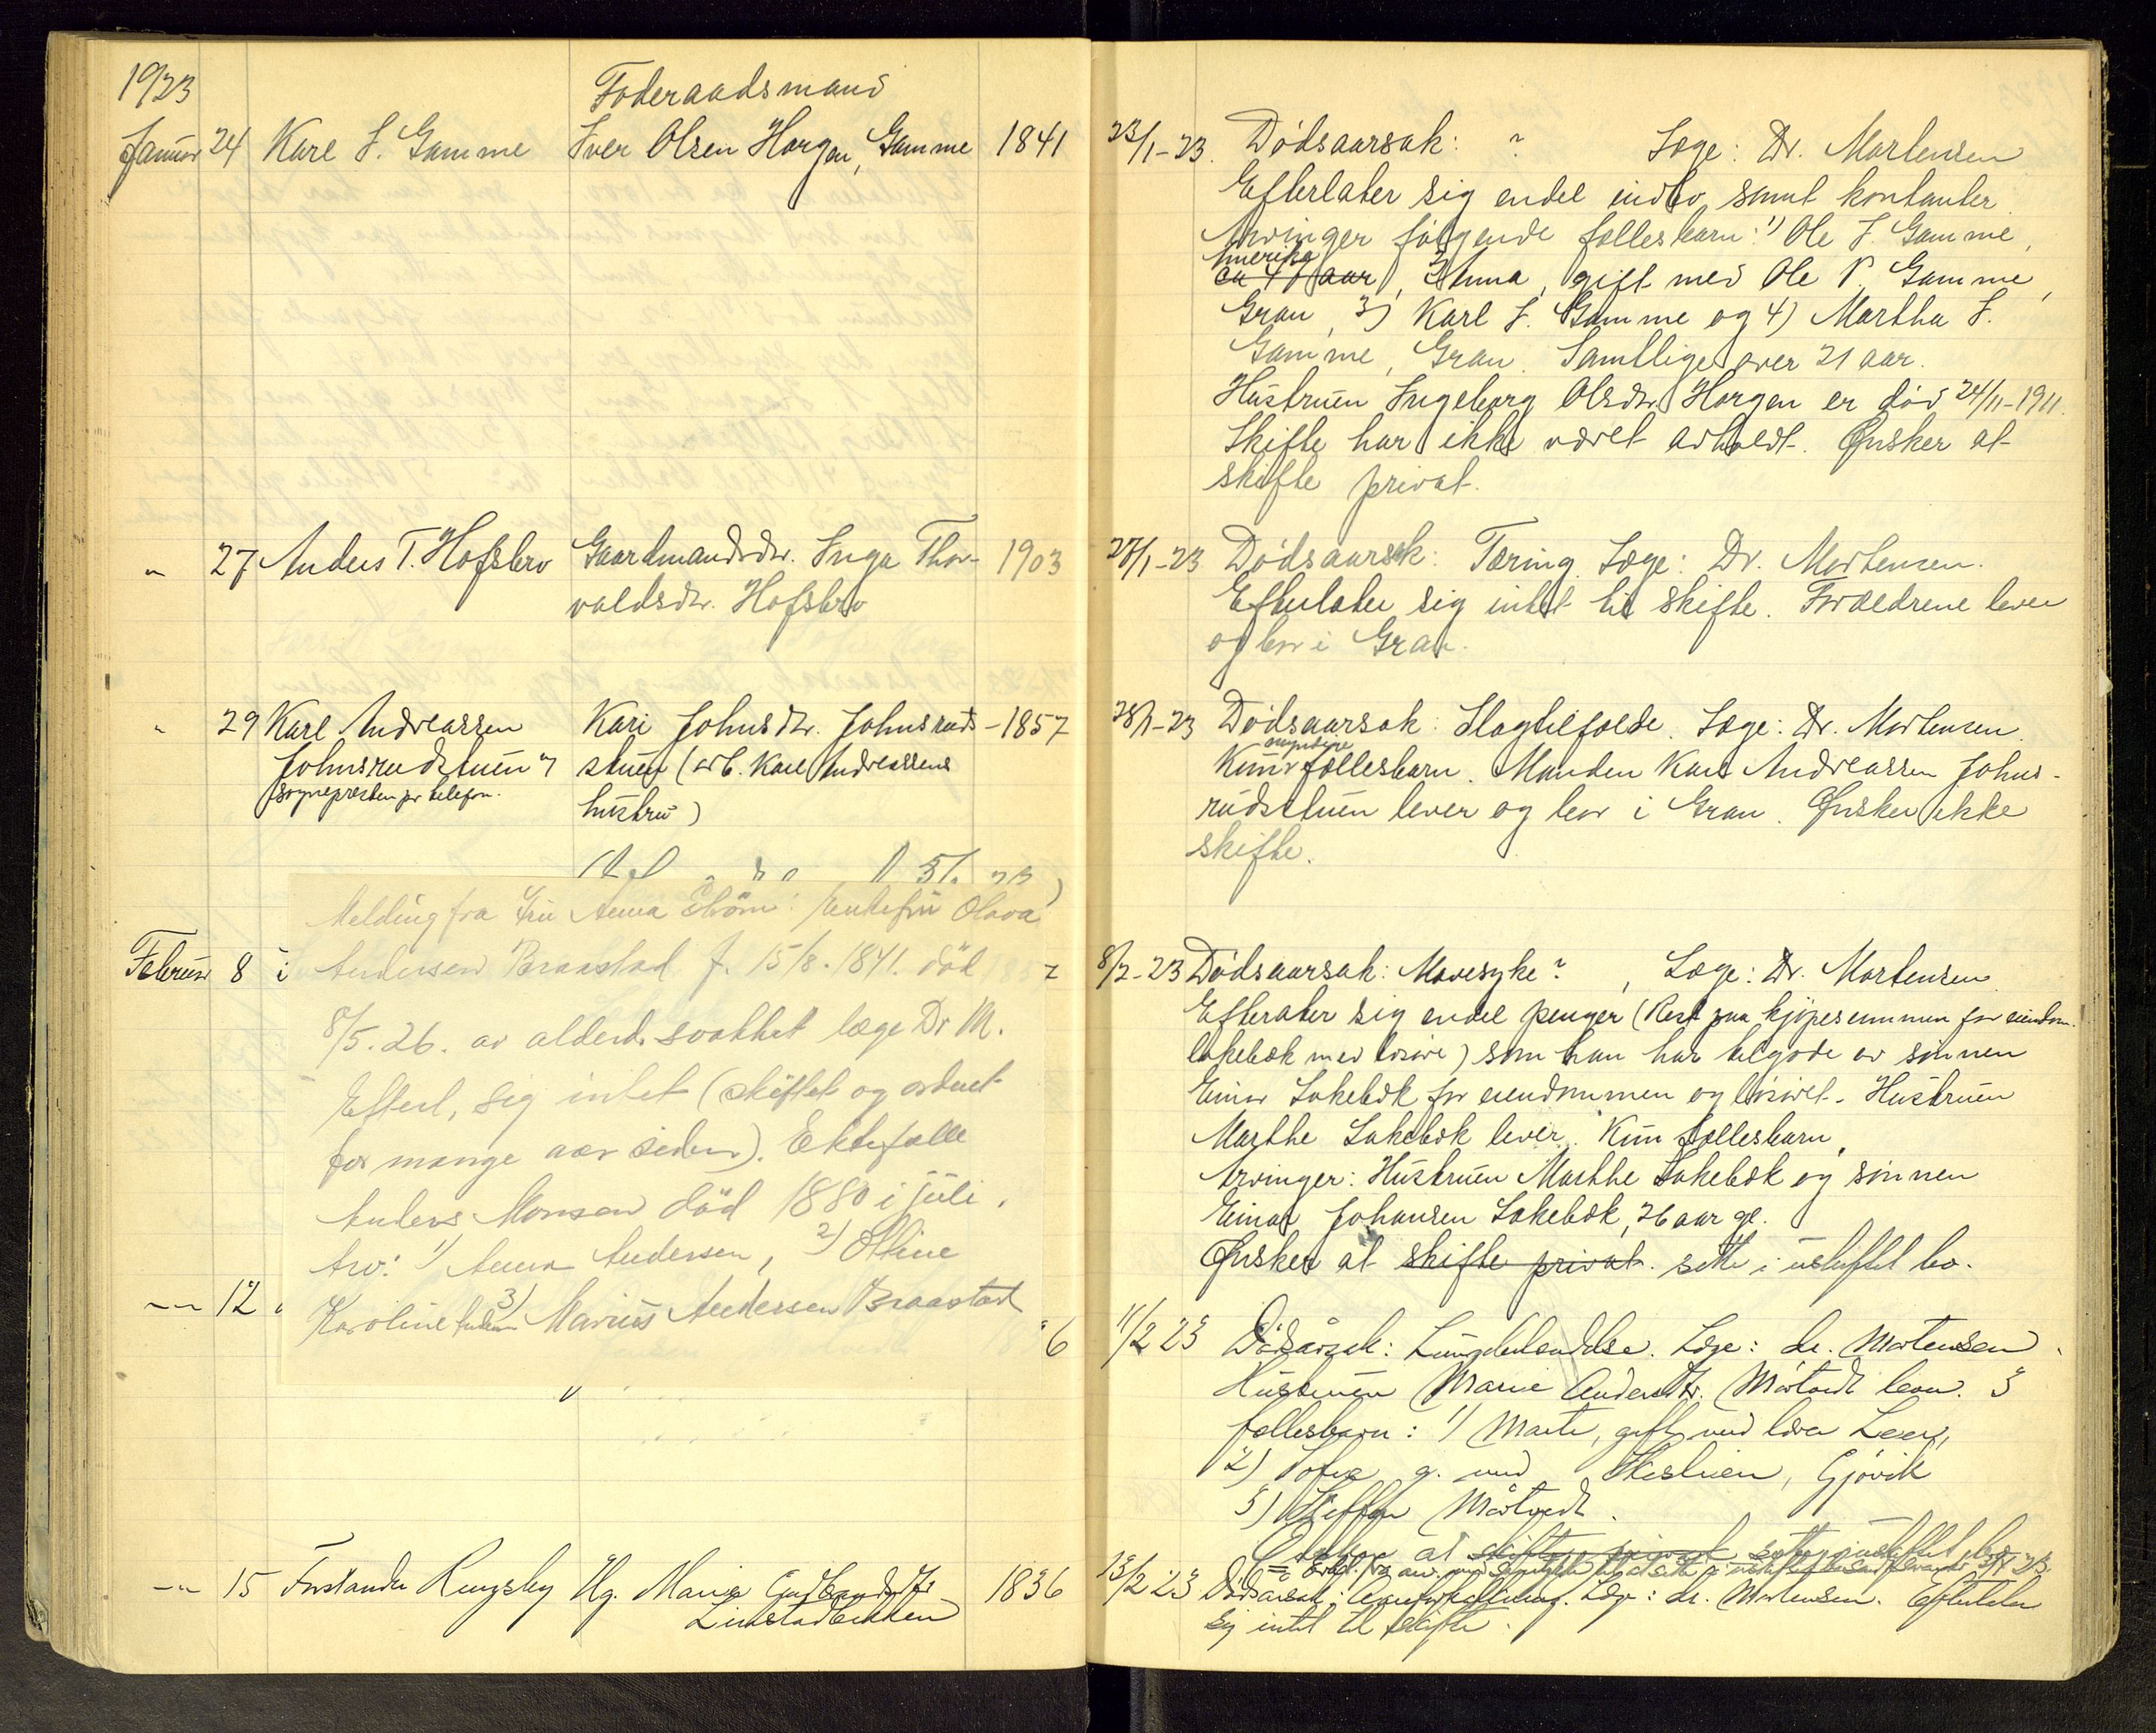 1923
Foderaadsmand
Januar 24 Karl I. Gamme Iver Olsen Horgen, Gamme 1841
" 27 Anders T. Hofsbro Gaardmandsdtr. Inga Thor- 1903
valdsdtr. Hofsbro
" 29 Karl Andreassen Kari Johnsdtr. Johnsruds- 1857
Johnsrudstuen v/ stuen (arb. Karl Andreassens
sognepresten pr telefon. hustru)
Melding fra Fru Anna Strøm: Enkefru Olava
Februar 8 i Andersen Braastad f. 15/8. 1841. död 7
8/5. 26. av alderd. svakhet læge Dr M.
Efterl. sig intet (skiftet og ordnet
for mange aar siden). Ektefælle
Anders Monsen död 1880 i juli.
Arv: 1) Anna Andersen, 2) Otline
-"- 12 Karoline 3) Marius Andersen Braastad 6
-"- 15 Forstander Ringsby Ug. Marie Gudbrandsdtr 1836
Linstadbakken
23/1-23. Dødsaarsak: ? Læge: Dr. Mortensen
Efterlater sig endel indbo samt kontanter.
Arvinger følgende fællesbarn: 1) Ole I. Gamme,
Amerika
ca 47 aar, 2) Anna, gift med Ole P. Gamme,
Gran, 3) Karl I. Gamme og 4) Martha I.
Gamme, Gran. Samtlige over 21 aar.
Hustruen Ingeborg Olsdtr. Horgen er død 24/11-1911.
Skifte har ikke været avholdt. Ønsker at
skifte privat.
27/1-23 Dødsaarsak: Tæring. Læge: Dr. Mortensen.
Efterlater sig intet til skifte. Forældrene lever
og bor i Gran.
28/1-23 Dødsaarsak: Slagtilfælde. Læge: Dr. Mortensen.
myndige
Kun fællesbarn. Manden Karl Andreassen Johns-
rudstuen lever og bor i Gran. Ønsker ikke
skifte.
8/2-23 Dødsaarsak: Mavesyke?, Læge: Dr. Mortensen
Efterlater sig endel penger (Rest paa kjøpesummen for eiendom.
Lokebæk med løsøre) som han har tilgode av sønnen
Einar Lokebæk for eiendommen og løsøret. Hustruen
Marthe Lokebæk lever. Kun fællesbarn.
Arvinger: Hustruen Marthe Lokebæk og sønnen
Einar Johansen Lokebæk, 26 aar gl.
Ønsker at skifte privat. sitte i uskiftet bo.
11/2 23 Dødsårsak: Lungebetændelse. Læge: dr. Mortensen.
Hustruen Marie Andersdtr. Måtvedt lever. 3
fællesbarn: 1) Marte, gift med Iver Leen,
2) Sofie g. med Skeslien, Gjøvik
3) Steffen Måtvedt.
Ønsker at skifte privat sitte i uskiftet bo
13/2 23 Dødsårsak: Læge: dr. Mortensen. Efterlater
sig intet til skifte.